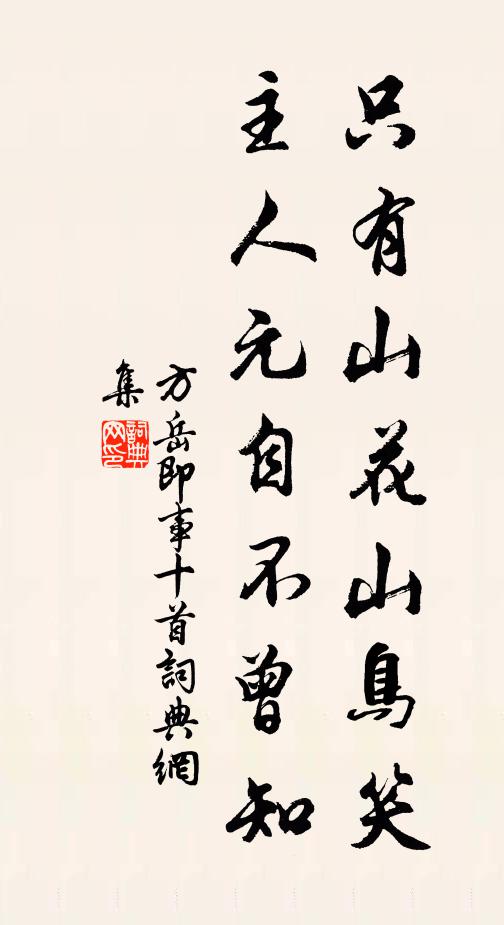 只有山花山鳥笑
主人元自不曾知
方岳即事十首詞典網
集
詞典
网印